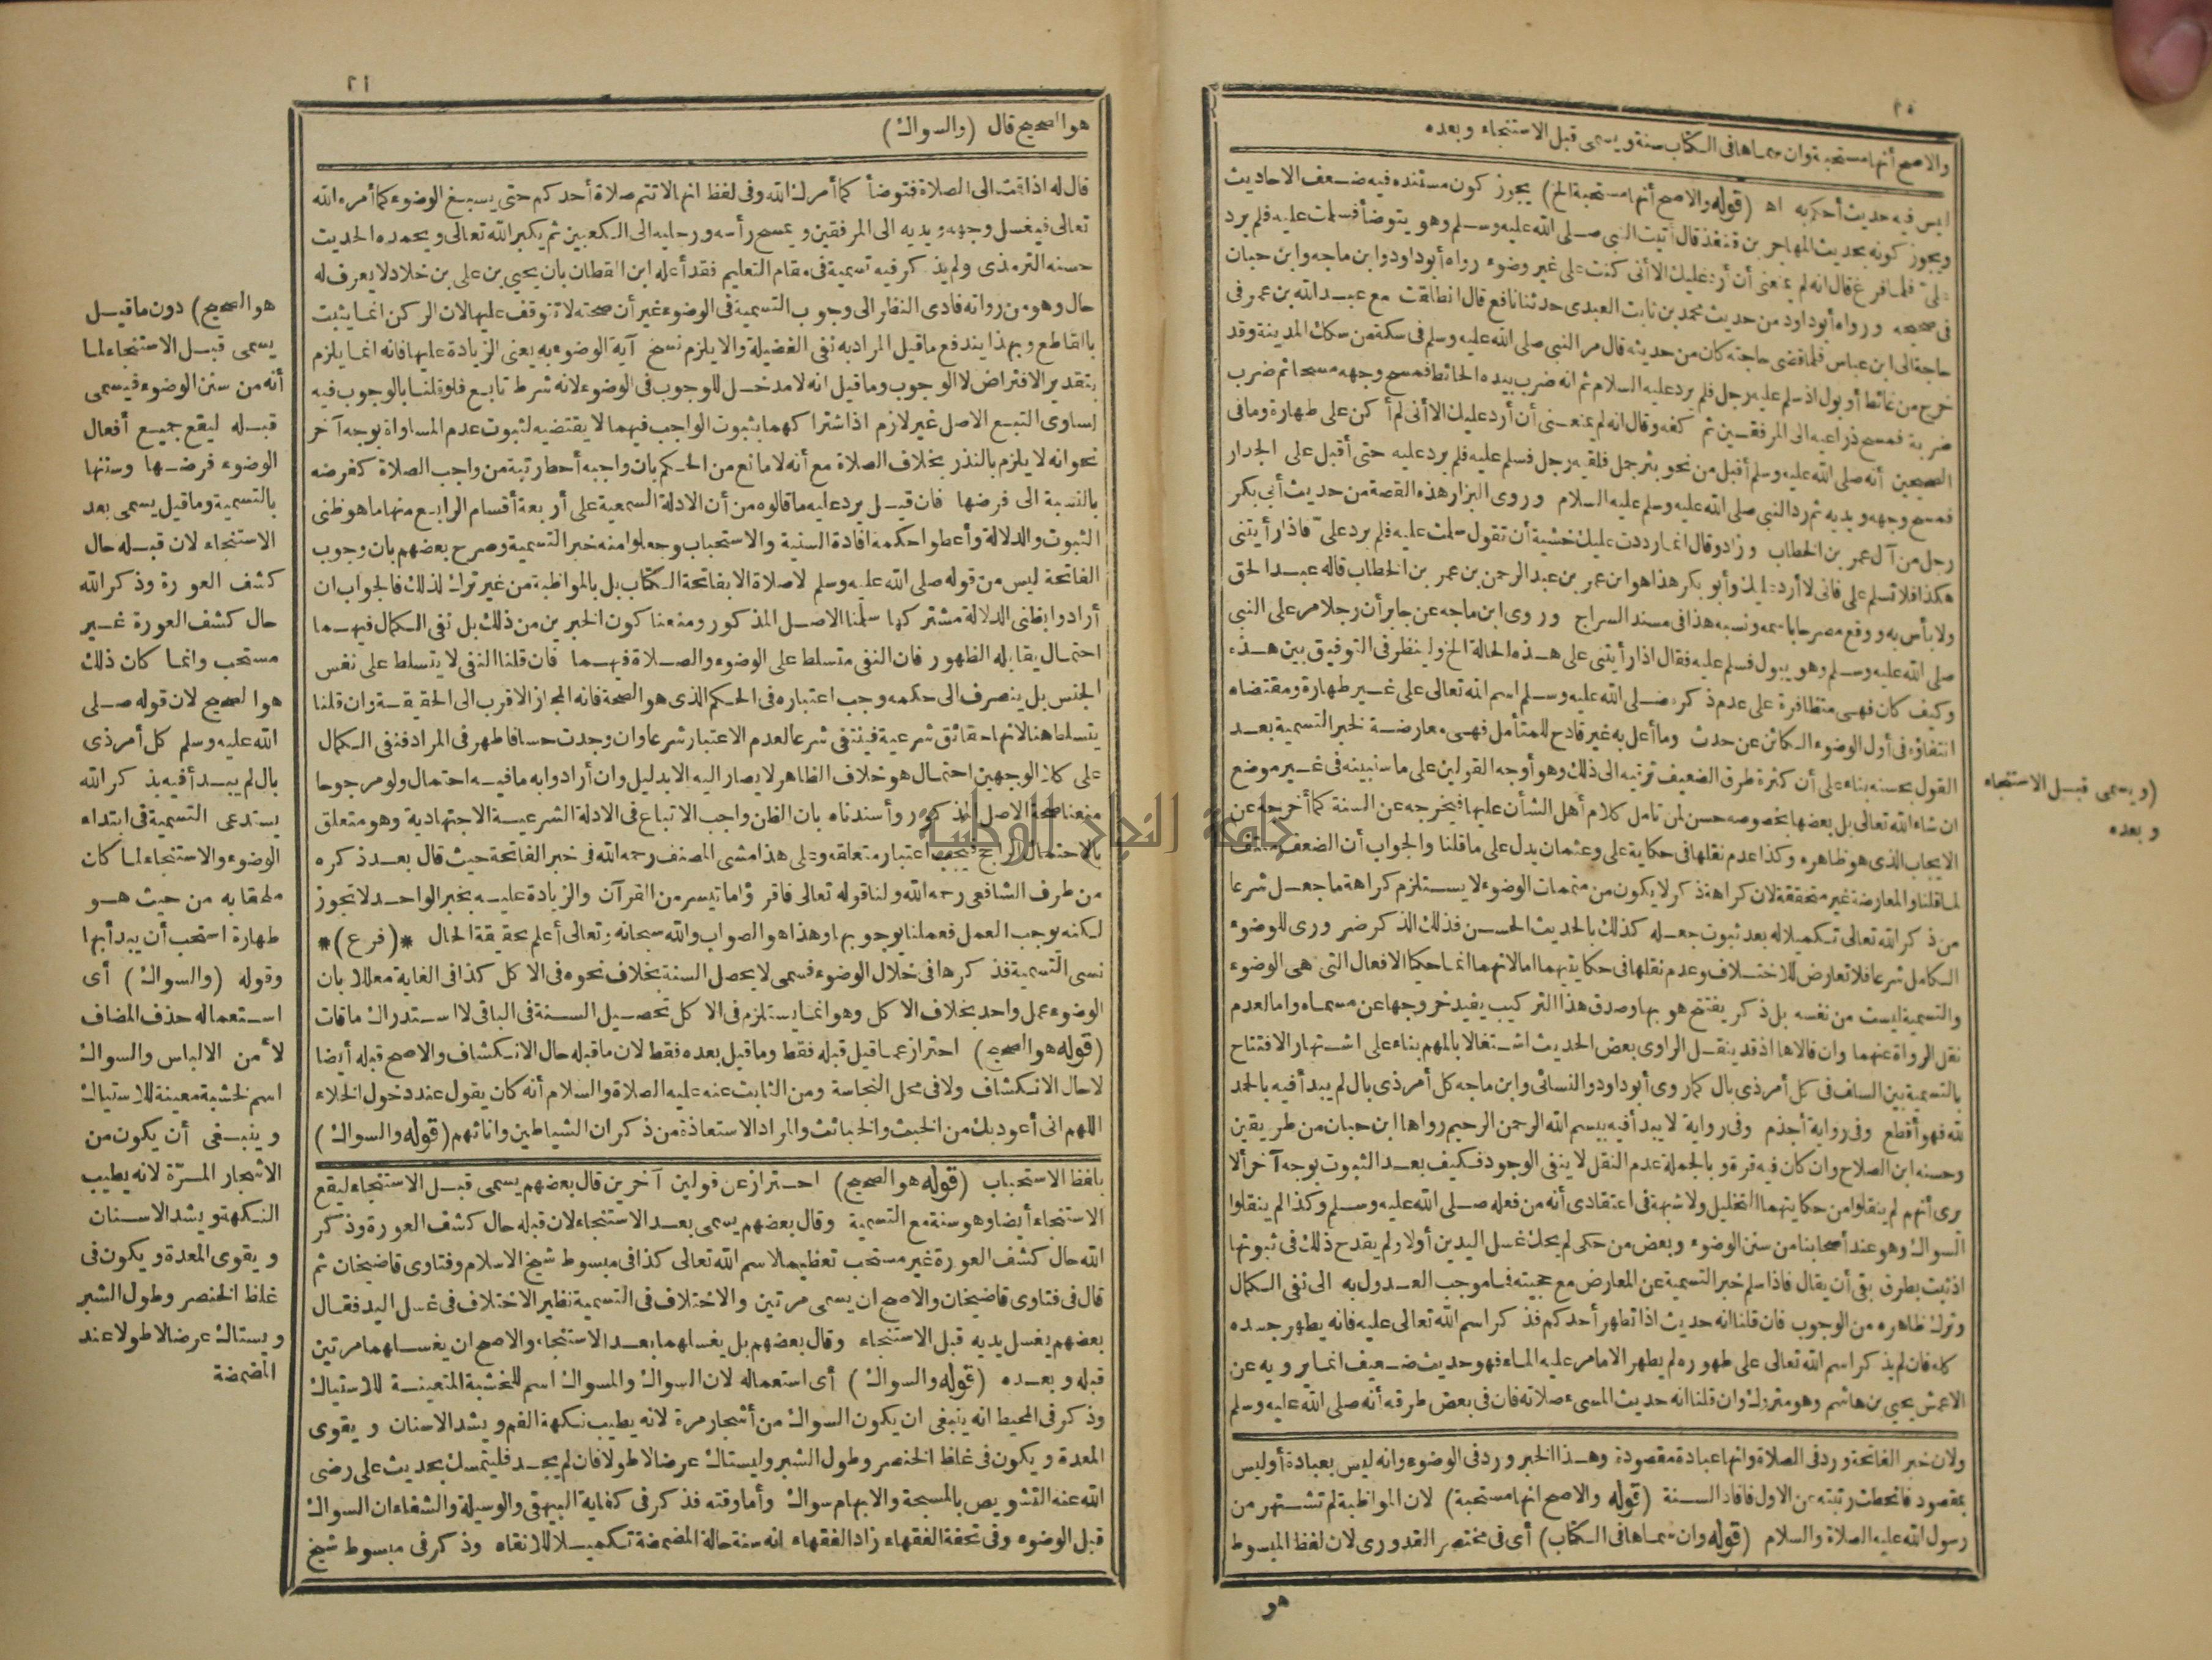 ٢٠
والاصح أنها مستحبة وان سماها فى الكتاب سنة ويسمى قبل الاستنجاء وبعده
ليس فيه حديث أحكم به اه (قوله والاصح أنها مستحبة الخ) يجوز كون مستنده فيه ضعف الاحاديث
ويجوز كونه بحديث المهاجر بن قنفذ قال أتيت النبى صلى الله عليه وسلم وهو يتوضأ فسلمت عليه فلم يرد
علىّ فلما فرغ قال انه لم يمنعنى أن أرد عليك الا أنى كنت على غير وضوء رواه أبو داود وابن ماجه وابن حبان
فى صحيحه ورواه أبو داود من حديث محمد بن ثابت العبدى حدثنا نافع قال انطلقت مع عبد الله بن عمر فى
حاجة الى ابن عباس فلما قضى حاجته كان من حديثه قال مر النبى صلى الله عليه وسلم فى سكة من سكك المدينة وقد
خرج من غائط أو بول اذ سلم عليه رجل فلم يرد عليه السلام ثم انه ضرب بيده الحائط فمسح وجهه مسحا ثم ضرب
ضربة فمسح ذراعيه الى المرفقين ثم كفه وقال انه لم يمنعنى أن أرد عليك الا أنى لم أكن على طهارة وما فى
الصحيحين أنه صلى الله عليه وسلم أقبل من نحو بئر جمل فلقيه رجل فسلم عليه فلم يرد عليه حتى أقبل على الجدار
فمسح وجهه ويديه ثم رد النبى صلى الله عليه وسلم عليه السلام وروى البزار هذه القصة من حديث أبى بكر
رجل من آل عمر بن الخطاب وزاد وقال انما رددت عليك خشية أن تقول سلمت عليه فلم يرد علىّ فاذا رأيتنى
هكذا فلا تسلم على فانى لا أرد عليك وأبو بكر هذا هو ابن عمر بن عبد الرحمن بن عمر بن الخطاب قاله عبد الحق
ولا بأس به ووقع مصرحا باسمه ونسبه هذا فى مسند السراج وروى ابن ماجه عن جابر أن رجلا مر على النبى
صلى الله عليه وسلم وهو يبول فسلم عليه فقال اذا رأيتنى على هذه الحالة الخ ولينظر فى التوفيق بين هذه
وكيف كان فهى متظافرة على عدم ذكره صلى الله عليه وسلم اسم الله تعالى على غير طهارة ومقتضاه
انتفاؤه فى أول الوضوء الكائن عن حدث وما أعل به غير قادح للمتأمل فهى معارضة لخبر التسمية بعد
القول بحسنه بناء على أن كثرة طرق الضعيف ترقيه الى ذلك وهو أوجه القولين على ما سنبينه فى غير موضع
ان شاء الله تعالى بل بعضها بخصوصه حسن لمن تأمل كلام أهل الشأن عليها فيخرجه عن السنة كما أخرجه عن
الايجاب الذى هو ظاهره وكذا عدم نقلها فى حكاية على وعثمان يدل على ما قلنا والجواب أن الضعف منتف
لما قلنا والمعارضة غير متحققة لان كراهة ذكر لا يكون من متممات الوضوء لا يستلزم كراهة ما جعل شرعا
من ذكر الله تعالى تكميلا له بعد ثبوت جعله كذلك بالحديث الحسن فذلك الذكر ضرورى للوضوء
الكامل شرعا فلا تعارض للاختلاف وعدم نقلها فى حكايتهما اما لانهما انما حكيا الافعال التى هى الوضوء
والتسمية ليست من نفسه بل ذكر يفتتح هو بها وصدق هذا التركيب يفيد خروجها عن مسماه واما لعدم
نقل الرواة عنهما وان قالاها اذ قد ينقل الراوى بعض الحديث اشتغالا بالمهم بناء على اشتهار الافتتاح
بالتسمية بين السلف فى كل أمر ذى بال كما روى أبو داود والنسائى وابن ماجه كل أمر ذى بال لم يبدأ فيه بالحمد
لله فهو أقطع وفى رواية أجذم وفى رواية لا يبدأ فيه ببسم الله الرحمن الرحيم رواها ابن حبان من طريقين
وحسنه ابن الصلاح وان كان فيه قرة وبالجملة عدم النقل لا ينفى الوجود فكيف بعد الثبوت بوجه آخر ألا
يرى أنهم لم ينقلوا من حكايتهما التخليل ولا شبهة فى اعتقادى أنه من فعله صلى الله عليه وسلم وكذا لم ينقلوا
السواك وهو عند أصحابنا من سنن الوضوء وبعض من حكى لم يحك غسل اليدين أولا ولم يقدح ذلك فى ثبوتها
اذ ثبت بطرق بقى أن يقال فاذا سلم خبر التسمية عن المعارض مع حجيته فما موجب العدول به الى نفى الكمال
وترك ظاهره من الوجوب فان قلنا انه حديث اذا تطهر أحدكم فذكر اسم الله تعالى عليه فانه يطهر جسده
كله فان لم يذكر اسم الله تعالى على طهوره لم يطهر الا ما مر عليه الماء فهو حديث ضعيف انما يرويه عن
الاعمش يحيى بن هاشم وهو متروك وان قلنا انه حديث المسىء صلاته فان فى بعض طرقه أنه صلى الله عليه وسلم
ولان خبر الفاتحة ورد فى الصلاة وانها عبادة مقصودة وهذا الخبر ورد فى الوضوء وانه ليس بعبادة أو ليس
بمقصود فانحطت رتبته عن الاول فافاد السنة (قوله والاصح انها مستحبة) لان المواظبة لم تشتهر من
رسول الله عليه الصلاة والسلام (قوله وان سماها فى الكتاب) أى فى مختصر القدورى لان لفظ المبسوط
هو
(ويسمى قبل الاستنجاء
وبعده
٢١
هو الصحيح قال (والسواك)
قال له اذا قمت الى الصلاة فتوضأ كما أمرك الله وفى لفظ انها لا تتم صلاة أحدكم حتى يسبغ الوضوء كما أمره الله
تعالى فيغسل وجهه ويديه الى المرفقين ويمسح رأسه ورجليه الى الكعبين ثم يكبر الله تعالى ويحمده الحديث
حسنه الترمذى ولم يذكر فيه تسمية فى مقام التعليم فقد أعله ابن القطان بان يحيى بن على بن خلاد لا يعرف له
حال وهو من رواته فادى النظر الى وجوب التسمية فى الوضوء غير أن صحته لا تتوقف عليها لان الركن انما يثبت
بالقاطع وبهذا يندفع ما قيل المراد به نفى الفضيلة والا يلزم نسخ آية الوضوء به يعنى الزيادة عليها فانه انما يلزم
بتقدير الافتراض لا الوجوب وما قيل انه لا مدخل للوجوب فى الوضوء لانه شرط تابع فلو قلنا بالوجوب فيه
لساوى التبع الاصل غير لازم اذ اشتراكهما بثبوت الواجب فيهما لا يقتضيه لثبوت عدم المساواة بوجه آخر
نحو انه لا يلزم بالنذر بخلاف الصلاة مع أنه لا مانع من الحكم بان واجبه أحط رتبة من واجب الصلاة كفرضه
بالنسبة الى فرضها فان قيل يرد عليه ما قالوه من أن الادلة السمعية على أربعة أقسام الرابع منها ما هو ظنى
الثبوت والدلالة وأعطوا حكمه افادة السنية والاستحباب وجعلوا منه خبر التسمية وصرح بعضهم بان وجوب
الفاتحة ليس من قوله صلى الله عليه وسلم لا صلاة الا بفاتحة الكتاب بل بالمواظبة من غير ترك لذلك فالجواب ان
أرادوا بظنى الدلالة مشتركها سلمنا الاصل المذكور ومنعنا كون الخبرين من ذلك بل نفى الكمال فيهما
احتمال يقابله الظهور فان النفى متسلط على الوضوء والصلاة فيهما فان قلنا النفى لا يتسلط على نفس
الجنس بل ينصرف الى حكمه وجب اعتباره فى الحكم الذى هو الصحة فانه المجاز الاقرب الى الحقيقة وان قلنا
يتسلط هنا لانها حقائق شرعية فينتفى شرعا لعدم الاعتبار شرعا وان وجدت حسا فاظهر فى المراد فنفى الكمال
على كلا الوجهين احتمال هو خلاف الظاهر لا يصار اليه الا بدليل وان أرادوا به ما فيه احتمال ولو مرجوحا
منعنا صحة الاصل المذكور وأسندناه بان الظن واجب الاتباع فى الادلة الشرعية الاجتهادية وهو متعلق
بالاحتمال الراجح فيجب اعتبار متعلقه وعلى هذا مشى المصنف رحمه الله فى خبر الفاتحة حيث قال بعد ذكره
من طرف الشافعى رحمه الله ولنا قوله تعالى فاقرؤا ما تيسر من القرآن والزيادة عليه بخبر الواحد لا تجوز
لكنه يوجب العمل فعملنا بوجوبها وهذا هو الصواب والله سبحانه وتعالى أعلم بحقيقة الحال *(فرع)*
نسى التسمية فذكرها فى خلال الوضوء فسمى لا يحصل السنة بخلاف نحوه فى الاكل كذا فى الغاية معللا بان
الوضوء عمل واحد بخلاف الاكل وهو انما يستلزم فى الاكل تحصيل السنة فى الباقى لا استدراك ما فات
(قوله هو الصحيح) احتراز عما قيل قبله فقط وما قيل بعده فقط لان ما قبله حال الانكشاف والاصح قبله أيضا
لا حال الانكشاف ولا فى محل النجاسة ومن الثابت عنه عليه الصلاة والسلام أنه كان يقول عند دخول الخلاء
اللهم انى أعوذ بك من الخبث والخبائث والمراد الاستعاذة من ذكران الشياطين واناثهم (قوله والسواك)
بلفظ الاستحباب (قوله هو الصحيح) احتراز عن قولين آخرين قال بعضهم يسمى قبل الاستنجاء ليقع
الاستنجاء أيضا وهو سنة مع التسمية وقال بعضهم يسمى بعد الاستنجاء لان قبله حال كشف العورة وذكر
الله حال كشف العورة غير مستحب تعظيما لاسم الله تعالى كذا فى مبسوط شيخ الاسلام وفتاوى قاضيخان ثم
قال فى فتاوى قاضيخان والاصح ان يسمى مرتين والاختلاف فى التسمية نظير الاختلاف فى غسل اليد فقال
بعضهم يغسل يديه قبل الاستنجاء وقال بعضهم بل يغسلهما بعد الاستنجاء والاصح ان يغسلهما مرتين
قبله وبعده (قوله والسواك) أى استعماله لان السواك والمسواك اسم للخشبة المتعينة للاستياك
وذكر فى المحيط انه ينبغى ان يكون السواك من أشجار مرة لانه يطيب نكهة الفم ويشد الاسنان ويقوى
المعدة ويكون فى غلظ الخنصر وطول الشبر وليستاك عرضا لا طولا فان لم يجد فليتمسك بحديث على رضى
الله عنه التشويص بالمسبحة والابهام سواك وأما وقته فذكر فى كفاية البيهقى والوسيلة والشفاء ان السواك
قبل الوضوء وفى تحفة الفقهاء زاد الفقهاء انه سنة حالة المضمضة تكميلا للانقاء وذكر فى مبسوط شيخ
هو الصحيح) دون ما قيل
يسمى قبل الاستنجاء لما
أنه من سنن الوضوء فيسمى
قبله ليقع جميع أفعال
الوضوء فرضها وسننها
بالتسمية وما قيل يسمى بعد
الاستنجاء لان قبله حال
كشف العورة وذكر الله
حال كشف العورة غير
مستحب وانما كان ذلك
هو الصحيح لان قوله صلى
الله عليه وسلم كل أمر ذى
بال لم يبدأ فيه بذكر الله
يستدعى التسمية فى ابتداء
الوضوء والاستنجاء لما كان
ملحقا به من حيث هو
طهارة استحب أن يبدأ بها
وقوله (والسواك) أى
استعماله حذف المضاف
لأمن الالباس والسواك
اسم لخشبة معينة للاستياك
وينبغى أن يكون من
الاشجار المرّة لانه يطيب
النكهة ويشد الاسنان
ويقوى المعدة ويكون فى
غلظ الخنصر وطول الشبر
ويستاك عرضا لا طولا عند
المضمضة
جامعة النجاح الوطنية